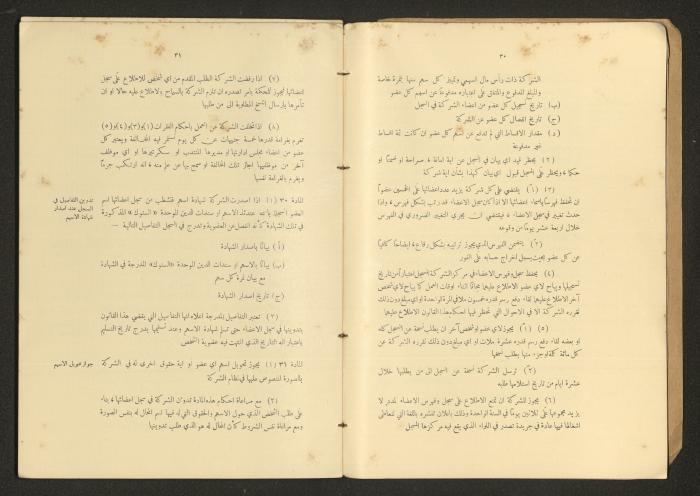 ٣٠
الشركة ذات رأس مال اسهمي وتمييز كل سهم منها بنمرة خاصة
والمبلغ المدفوع والمتفق على اعتباره مدفوعًا عن اسهم كل عضو
(ب) تاريخ تسجيل كل عضو من اعضاء الشركة في السجل
(ج) تاريخ انفصال كل عضو عن الشركة
(د) مقدار الاقساط التي لم تدفع عن اسهم كل عضو ان كانت ثمة اقساط
غير مدفوعة
(٢) يحظر قيد اي بيان في السجل عن اية امانة ، صراحة او ضمنًا او
حكمًا ، ويحظر على المسجل قبول اي بيان كهذا بشأن اية شركة
(٣) (١) يقتضي على كل شركة يزيد عدد اعضائها على الخمسين عضوًا
ان تحفظ فهرسًا باسماء اعضائها الا اذا كان سجل الاعضاء قد رتب بشكل فهرس ، واذا
حدث تغيير في سجل الاعضاء ، فيقتضي ان يجري التغيير الضروري في الفهرس
خلال اربعة عشر يومًا من وقوعه
(٢) يتضمن الفهرس الذي يجوز ترتيبه بشكل رقاع ، ايضاحًا كافيًا
عن كل عضو بحيث يسهل اخراج حسابه على الفور
(٤) يحفظ سجل وفهرس الاعضاء في مركز الشركة المسجل اعتبارًا من تاريخ
تسجيلها ويباح لاي عضو الاطلاع عليها مجانًا اثناء اوقات العمل كما يباح لاي شخص
آخر الاطلاع عليها لقاء دفع رسم قدره خمسون ملا في المرة الواحدة او اي مبلغ دون ذلك
تقرره الشركة الا في الاحوال التي تحظر فيها احكام هذا القانون الاطلاع عليها
(٥) (١) يجوز لاي عضو او شخص آخر ان يطلب نسخة عن السجل كله
او بعضه لقاء دفع رسم قدره عشرة ملات او اي مبلغ دون ذلك تقرره الشركة عن
كل مائة كلمة او جزء منها يطلب نسخها
(٢) ترسل الشركة نسخة عن السجل الى من يطلبها خلال
عشرة ايام من تاريخ استلامها طلبه
(٦) يجوز للشركة ان تمنع الاطلاع على سجل وفهرس الاعضاء لمدد لا
يزيد مجموعها على ثلاثين يومًا في السنة الواحدة وذلك باعلان تنشره باللغة التي تتعاطى
اشغالها فيها عادة في جريدة تصدر في اللواء الذي يقع فيه مركزها المسجل
٣١
(٧) اذا رفضت الشركة الطلب المقدم من اي شخص للاطلاع على سجل
اعضائها فيجوز للمحكمة بأمر تصدره ان تلزم الشركة بالسماح بالاطلاع عليه حالا او ان
تأمرها بارسال النسخ المطلوبة الى من طلبها
(٨) اذا تخلفت الشركة عن العمل باحكام الفقرات (١) و(٣) و(٤) و(٥)
تغرم بغرامة قدرها خمسة جنيهات عن كل يوم تستمر فيه المخالفة ويعتبر كل
عضو من اعضاء مجلس ادارتها او مديرها المنتدب او سكرتيرها او اي موظف
آخر من موظفيها اجاز تلك المخالفة او سمح بها عن علم منه ، انه ارتكب جرمًا
ويغرم بالغرامة نفسها
تدوين التفاصيل في
السجل عند اصدار
شهادة الاسهم
المادة ٣٠ (١) اذا اصدرت الشركة شهادة اسهم فتشطب من سجل اعضائها اسم
العضو المسجل بانه عنده الاسهم او سندات الدين الموحدة « الستوك » المذكورة
في تلك الشهادة كأنه انفصل عن العضوية وتدرج في السجل التفاصيل التالية :—
(أ) بيانًا باصدار الشهادة
(ب) بيانًا بالاسهم او سندات الدين الموحدة «الستوك» المدرجة في الشهادة
مع بيان نمرة كل سهم
(ج) تاريخ اصدار الشهادة
(٢) تعتبر التفاصيل المدرجة اعلاه انها التفاصيل التي يقضي هذا القانون
بتدوينها في سجل الاعضاء حتى تسلم شهادة الاسهم وعند تسليمها يدرج تاريخ التسليم
باعتبار انه التاريخ الذي انتهت فيه عضوية الشخص
جواز تحويل الاسهم
المادة ٣١ (١) يجوز تحويل اسهم اي عضو او اية حقوق اخرى له في الشركة
بالصورة المنصوص عليها في نظام الشركة
(٢) مع مراعاة احكام هذه المادة تدون الشركة في سجل اعضائها ، بناء
على طلب الشخص الذي حول الاسهم والحقوق التي له فيها اسم المحال له بنفس الصورة
ومع مراعاة نفس الشروط كأن المحال له هو الذي طلب تدوينها